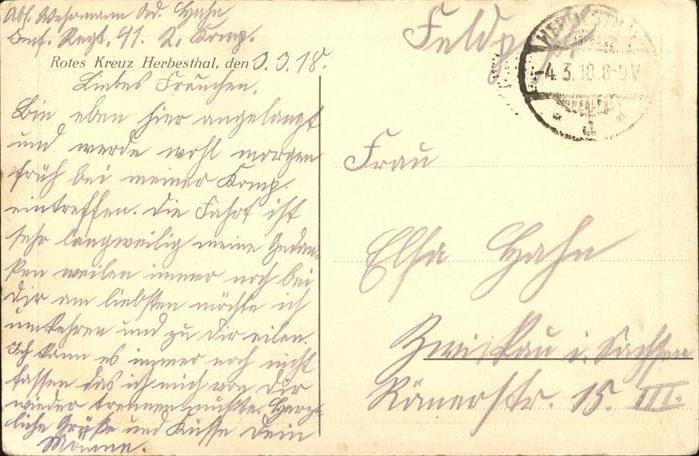 Abs. Wehrmann Od. Hahn
Inf. Regt. 41. 2. Komp.
Rotes Kreuz Herbesthal, den 3.3.18.
Liebes Frauchen.
Bin eben hier angelangt
und werde wohl morgen
früh bei meiner Komp.
eintreffen. Die Fahrt ist
sehr langweilig meine Gedan-
ken weilen immer noch bei
Dir am liebsten möchte ich
umkehren und zu Dir eilen.
Ich kann es immer noch nicht
fassen das ich mich von Dir
wieder trennen mußte. Herz-
liche Grüße und Küsse Dein
Manne.
-4.3.18.8-9V
Frau
Elsa Hahn
Zwickau i. Sachsen
Römerstr. 15. III.